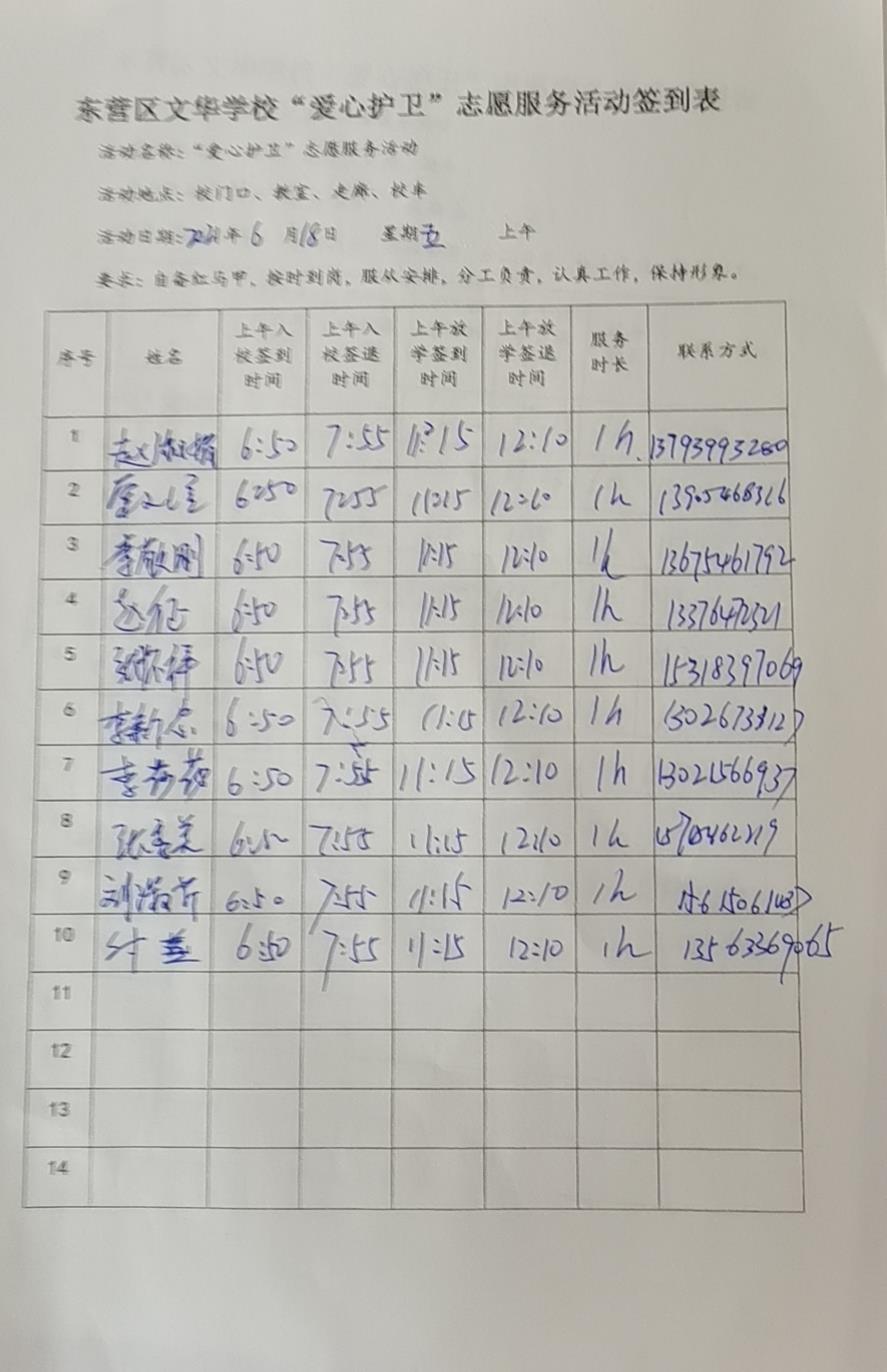 东营区文华学校“爱心护卫”志愿服务活动签到表
活动名称：“爱心护卫”志愿服务活动
活动地点：校门口、教室、走廊、校车
活动日期：2021年 6 月18日 星期五 上午
要求：自备红马甲、按时到岗，服从安排，分工负责，认真工作，保持形象。
序号 姓名 上午入校签到时间 上午入校签退时间 上午放学签到时间 上午放学签退时间 服务时长 联系方式
1 6:50 7:55 11:15 12:10 1h. 13793993280
2 6:50 7:55 11:15 12:10 1h 13905468316
3 李敬刚 6:50 7:55 11:15 12:10 1h 13675461792
4 赵征 6:50 7:55 11:15 12:10 1h 13376472321
5 6:50 7:55 11:15 12:10 1h 15318397069
6 李新忠 6:50 7:55 11:15 12:10 1h
7 6:50 7:55 11:15 12:10 1h 13021566937
8 张秀美 6:50 7:55 11:15 12:10 1h
9 6:50 7:55 11:15 12:10 1h
10 6:50 7:55 11:15 12:10 1h 13563369065
11
12
13
14